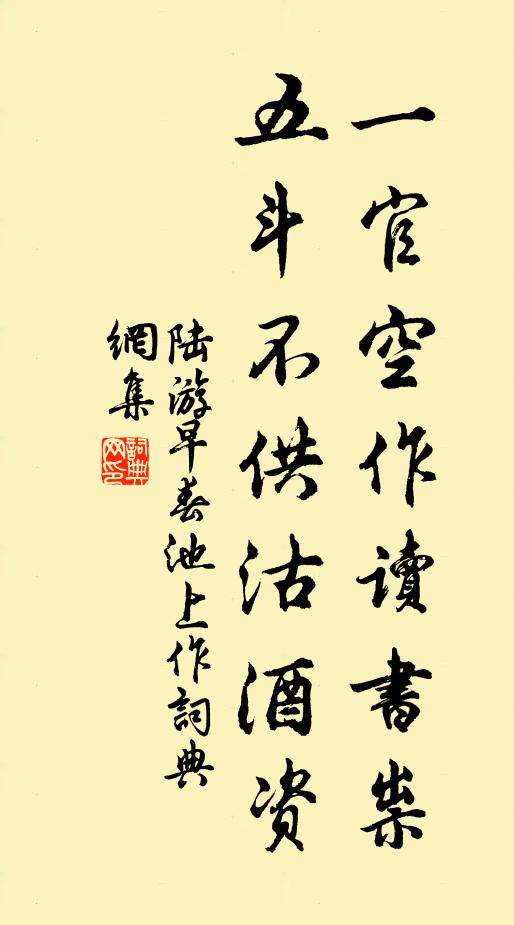 一官空作讀書祟
五斗不供沽酒资
陆游早春池上作詞典
網集
詞典
网印